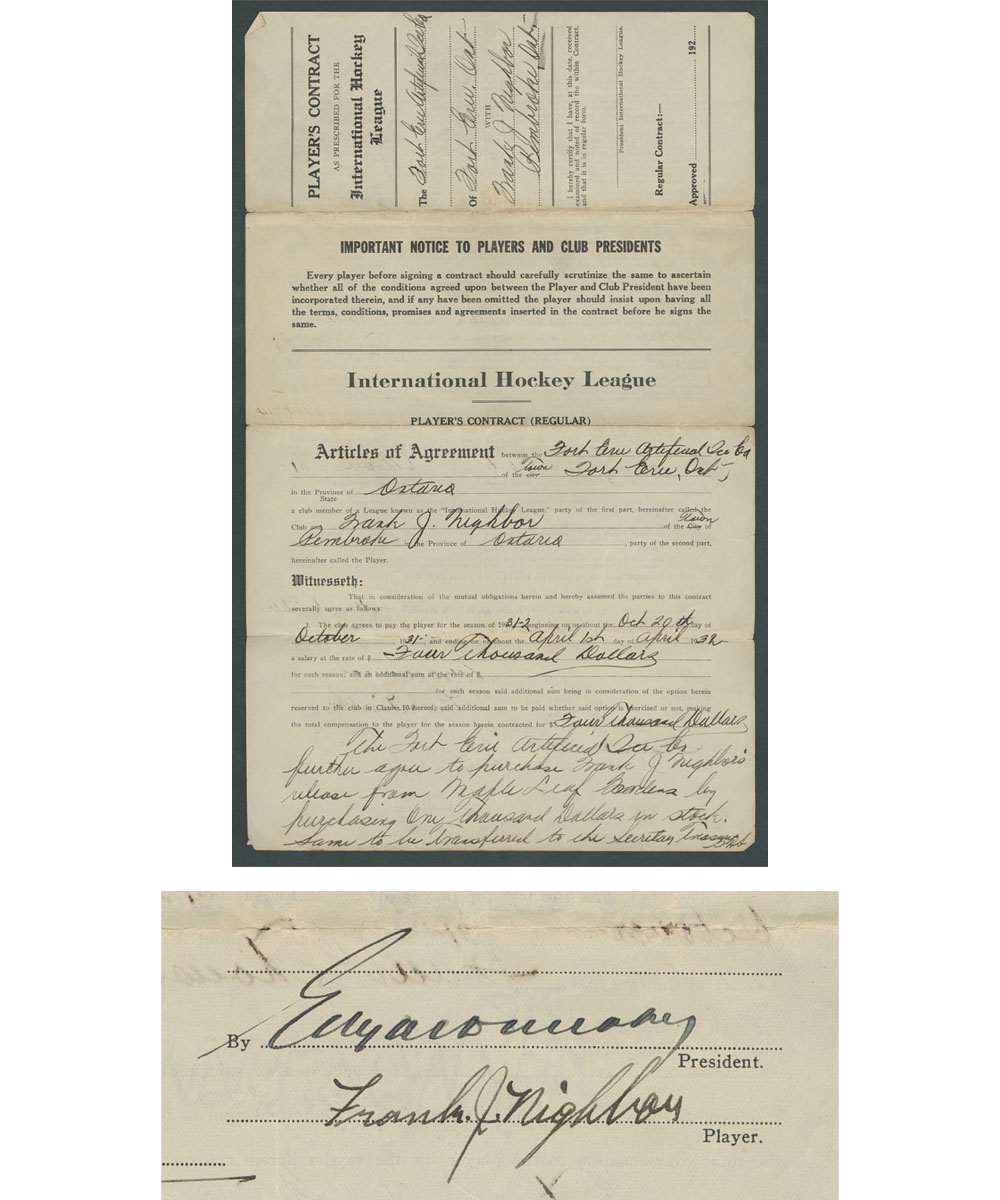 PLAYER'S CONTRACT
AS PRESCRIBED FOR THE
International Hockey
League
The Fort Erie Artificial Ice Co
Of Fort Erie, Ont.
WITH
Frank J. Nighbor
Pembroke Ont.
I hereby certify that I have, at this date, received
examined and noted of record the within Contract,
and that it is in regular form.
President International Hockey League.
Regular Contract:—
Approved 192
IMPORTANT NOTICE TO PLAYERS AND CLUB PRESIDENTS
Every player before signing a contract should carefully scrutinize the same to ascertain
whether all of the conditions agreed upon between the Player and Club President have been
incorporated therein, and if any have been omitted the player should insist upon having all
the terms, conditions, promises and agreements inserted in the contract before he signs the
same.
International Hockey League
PLAYER'S CONTRACT (REGULAR)
Articles of Agreement between the Fort Erie Artificial Ice Co
of the city Town Fort Erie, Ont.,
in the Province of Ontario
State
a club member of a League known as the "International Hockey League," party of the first part, hereinafter called the
Club and Frank J. Nighbor of the City Town of
Pembroke in the Province of Ontario, party of the second part,
hereinafter called the Player.
Witnesseth:
That in consideration of the mutual obligations herein and hereby assumed the parties to this contract
severally agree as follows:
1. The club agrees to pay the player for the season of 1931-2 beginning on or about the Oct 20th day of
October, 1931 and ending on or about the April 1st day of April 1932
a salary at the rate of $ Four Thousand Dollars
for such season; and an additional sum at the rate of $
for such season said additional sum being in consideration of the option herein
reserved to the club in Clause 10 hereof; said additional sum to be paid whether said option is exercised or not, making
the total compensation to the player for the season herein contracted for $ Four Thousand Dollars
The Fort Erie Artificial Ice Co
further agree to purchase Frank J Nighbor's
release from Maple Leaf Gardens by
purchasing One Thousand Dollars in stock.
Same to be transferred to the Secretary Treasurer
By
President.
Frank. J. Nighbor
Player.